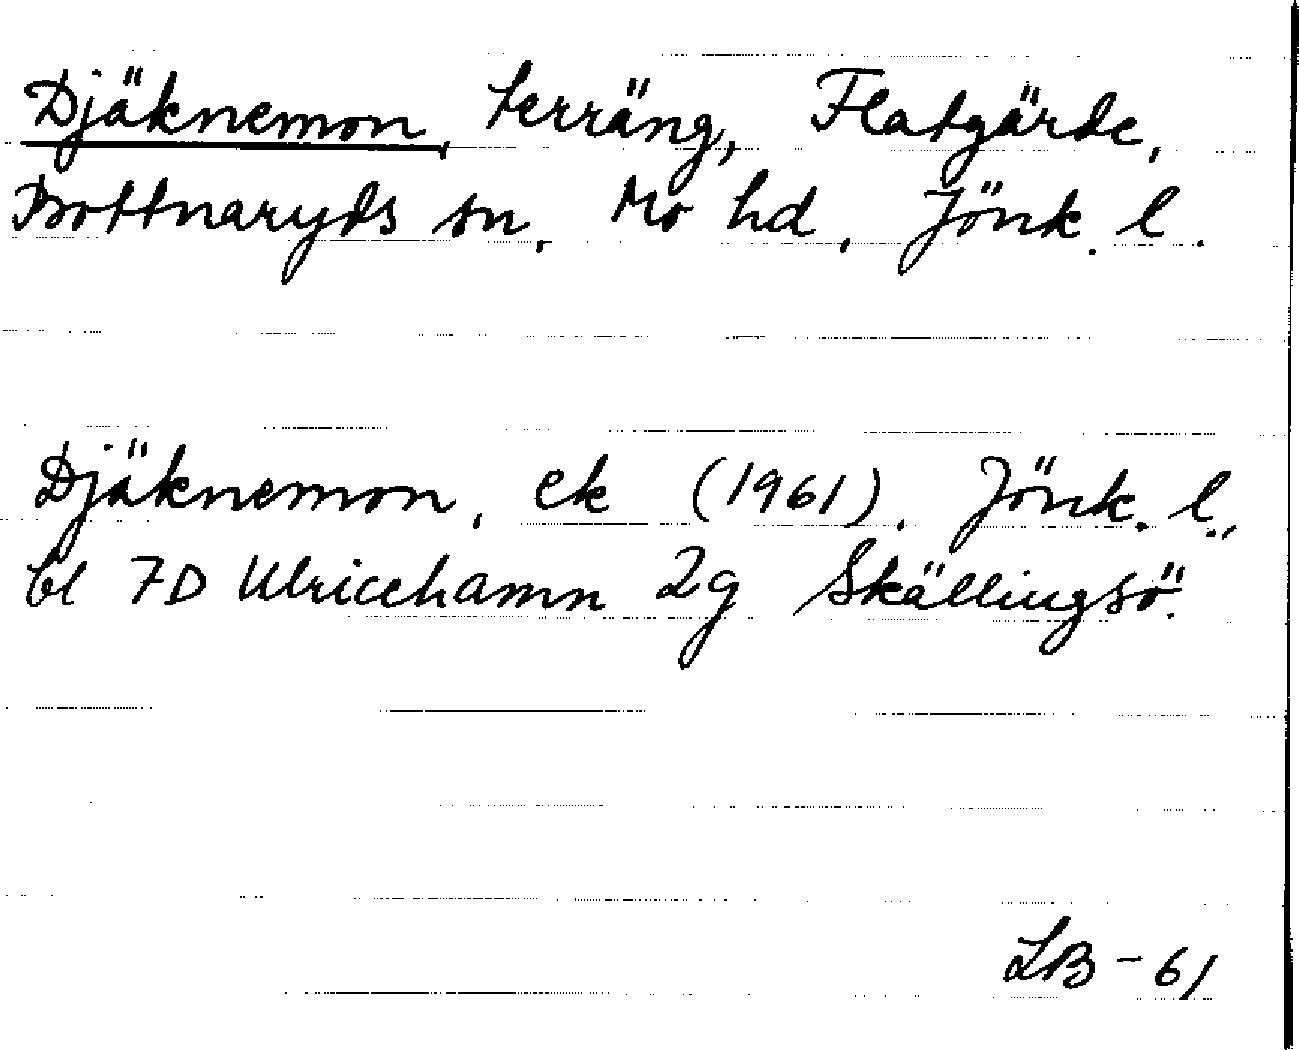 Djäknemon, terräng, Flatgärde,
Bottnaryds sn, Mo hd, Jönk. l.
Djäknemon, ek (1961), Jönk. l.,
bl 7D Ulricehamn 2g Skällingsö.
LB-61